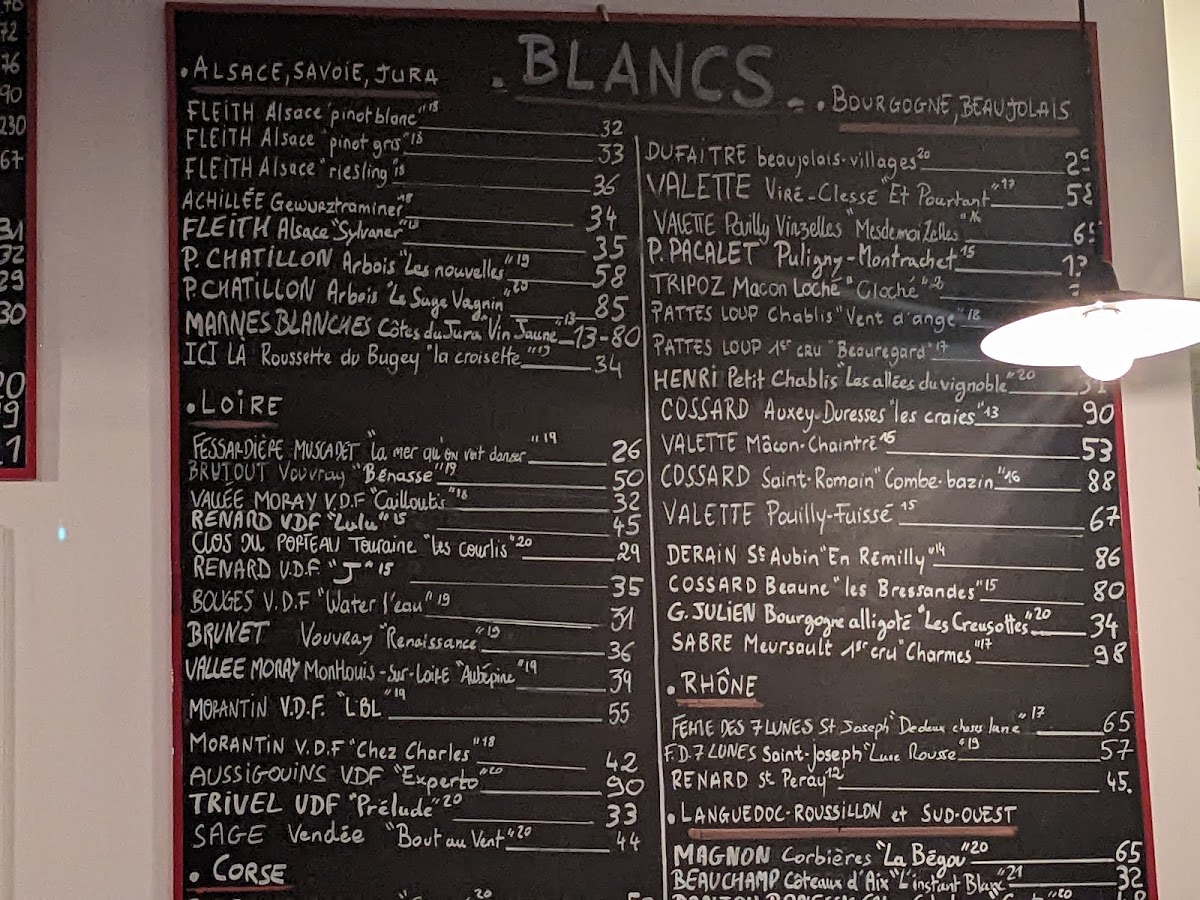 72
76
90
230
67
31
32
29
30
BLANCS
. ALSACE, SAVOIE, JURA
FLEITH Alsace "pinot blanc" 18 32
FLEITH Alsace "pinot gris" 18 33
FLEITH Alsace "riesling" 18 36
ACHILLÉE Gewurztraminer 18 34
FLEITH Alsace "Sylvaner" 18 35
P. CHATILLON Arbois "Les nouvelles" 19 58
P. CHATILLON Arbois "Le Sage Vagnin" 20 85
MARNES BLANCHES Côtes du Jura "Vin Jaune" 13 13-80
ICI LA Roussette du Bugey "la croisette" 19 34
. LOIRE
FESSARDIÈRE MUSCADET "la mer qu'on voit danser" 19 26
BRUTOUT Vouvray "Bénasse" 19 50
VALLÉE MORAY V.D.F "Cailloutis" 18 32
RENARD VDF "Lulu" 15 45
CLOS DU PORTEAU Touraine "Les courlis" 20 29
RENARD V.D.F. "J" 15 35
BOUGES V.D.F "Water l'eau" 19 31
BRUNET Vouvray "Renaissance" 19 36
VALLEE MORAY MontLouis-Sur-Loire "Aubépine" 19 39
MORANTIN V.D.F. "LBL" 19 55
MORANTIN V.D.F "Chez Charles" 18 42
AUSSIGOUINS VDF "Experto" 20 90
TRIVEL VDF "Prélude" 20 33
SAGE Vendée "Bout au Vent" 20 44
. CORSE
. BOURGOGNE, BEAUJOLAIS
DUFAITRE beaujolais-villages 20
VALETTE Viré-Clessé "Et Pourtant" 17 58
VALETTE Pouilly Vinzelles "MesdemoiZelles" 16
P. PACALET Puligny-Montrachet 15
TRIPOZ Macon Loché "Cloché"
PATTES LOUP Chablis "Vent d'ange" 18
PATTES LOUP 1er CRU "Beauregard" 17
HENRI Petit Chablis "Les allées du vignoble" 20
COSSARD Auxey-Duresses "les craies" 13 90
VALETTE Mâcon-Chaintré 15 53
COSSARD Saint-Romain "Combe-bazin" 16 88
VALETTE Pouilly-Fuissé 15 67
DERAIN St Aubin "En Rémilly" 14 86
COSSARD Beaune "les Bressandes" 15 80
G. JULIEN Bourgogne alligoté "Les Creusottes" 20 34
SABRE Meursault 1er cru "Charmes" 17 98
. RHÔNE
FERME DES 7 LUNES St Joseph "Dedeux choses lune" 17 65
F.D. 7 LUNES Saint-Joseph "Lune Rousse" 19 57
RENARD St Peray 12 45.
. LANGUEDOC-ROUSSILLON et SUD-OUEST
MAGNON Corbières "La Bégou" 20 65
BEAUCHAMP Côteaux d'Aix "L'instant Blanc" 21 32